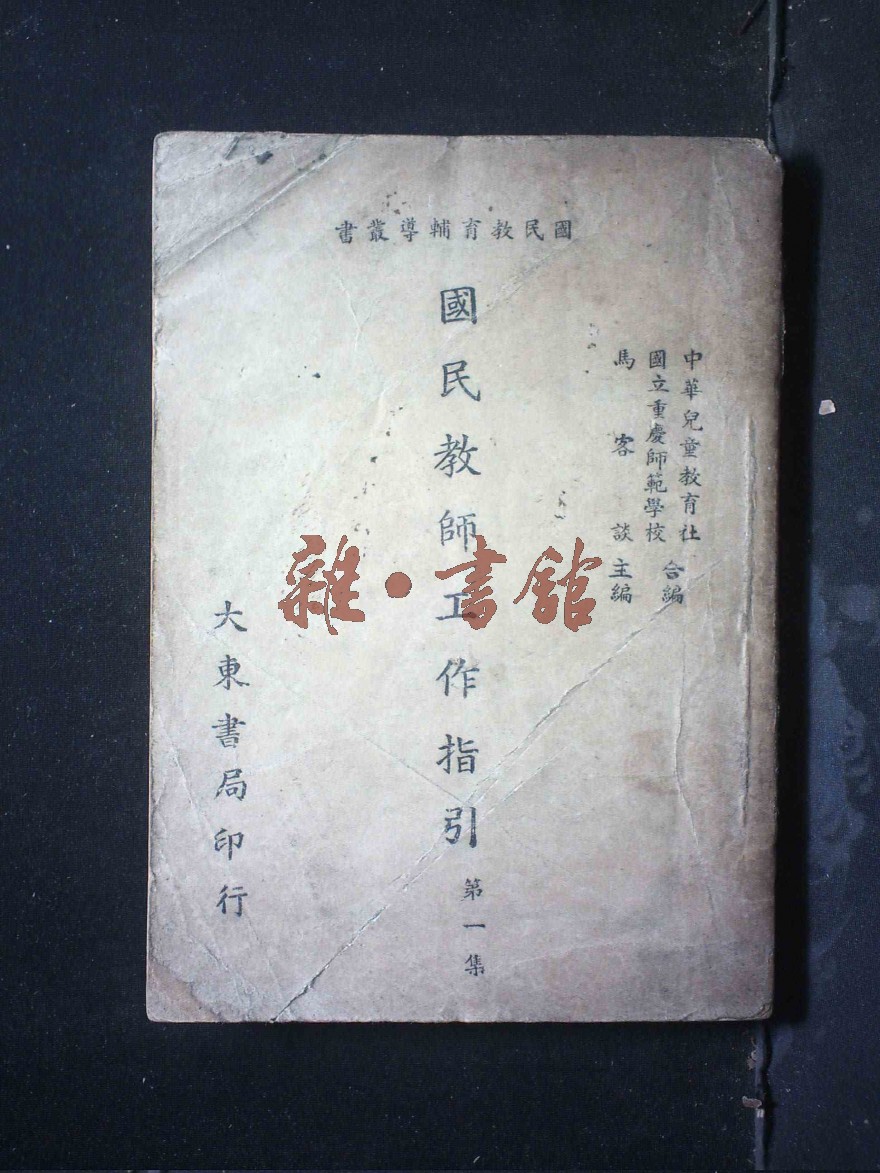 國民教育輔導叢書
中華兒童教育社
國立重慶師範學校
合編
馬客談主編
國民教師工作指引
第一集
大東書局印行
雜·書舘